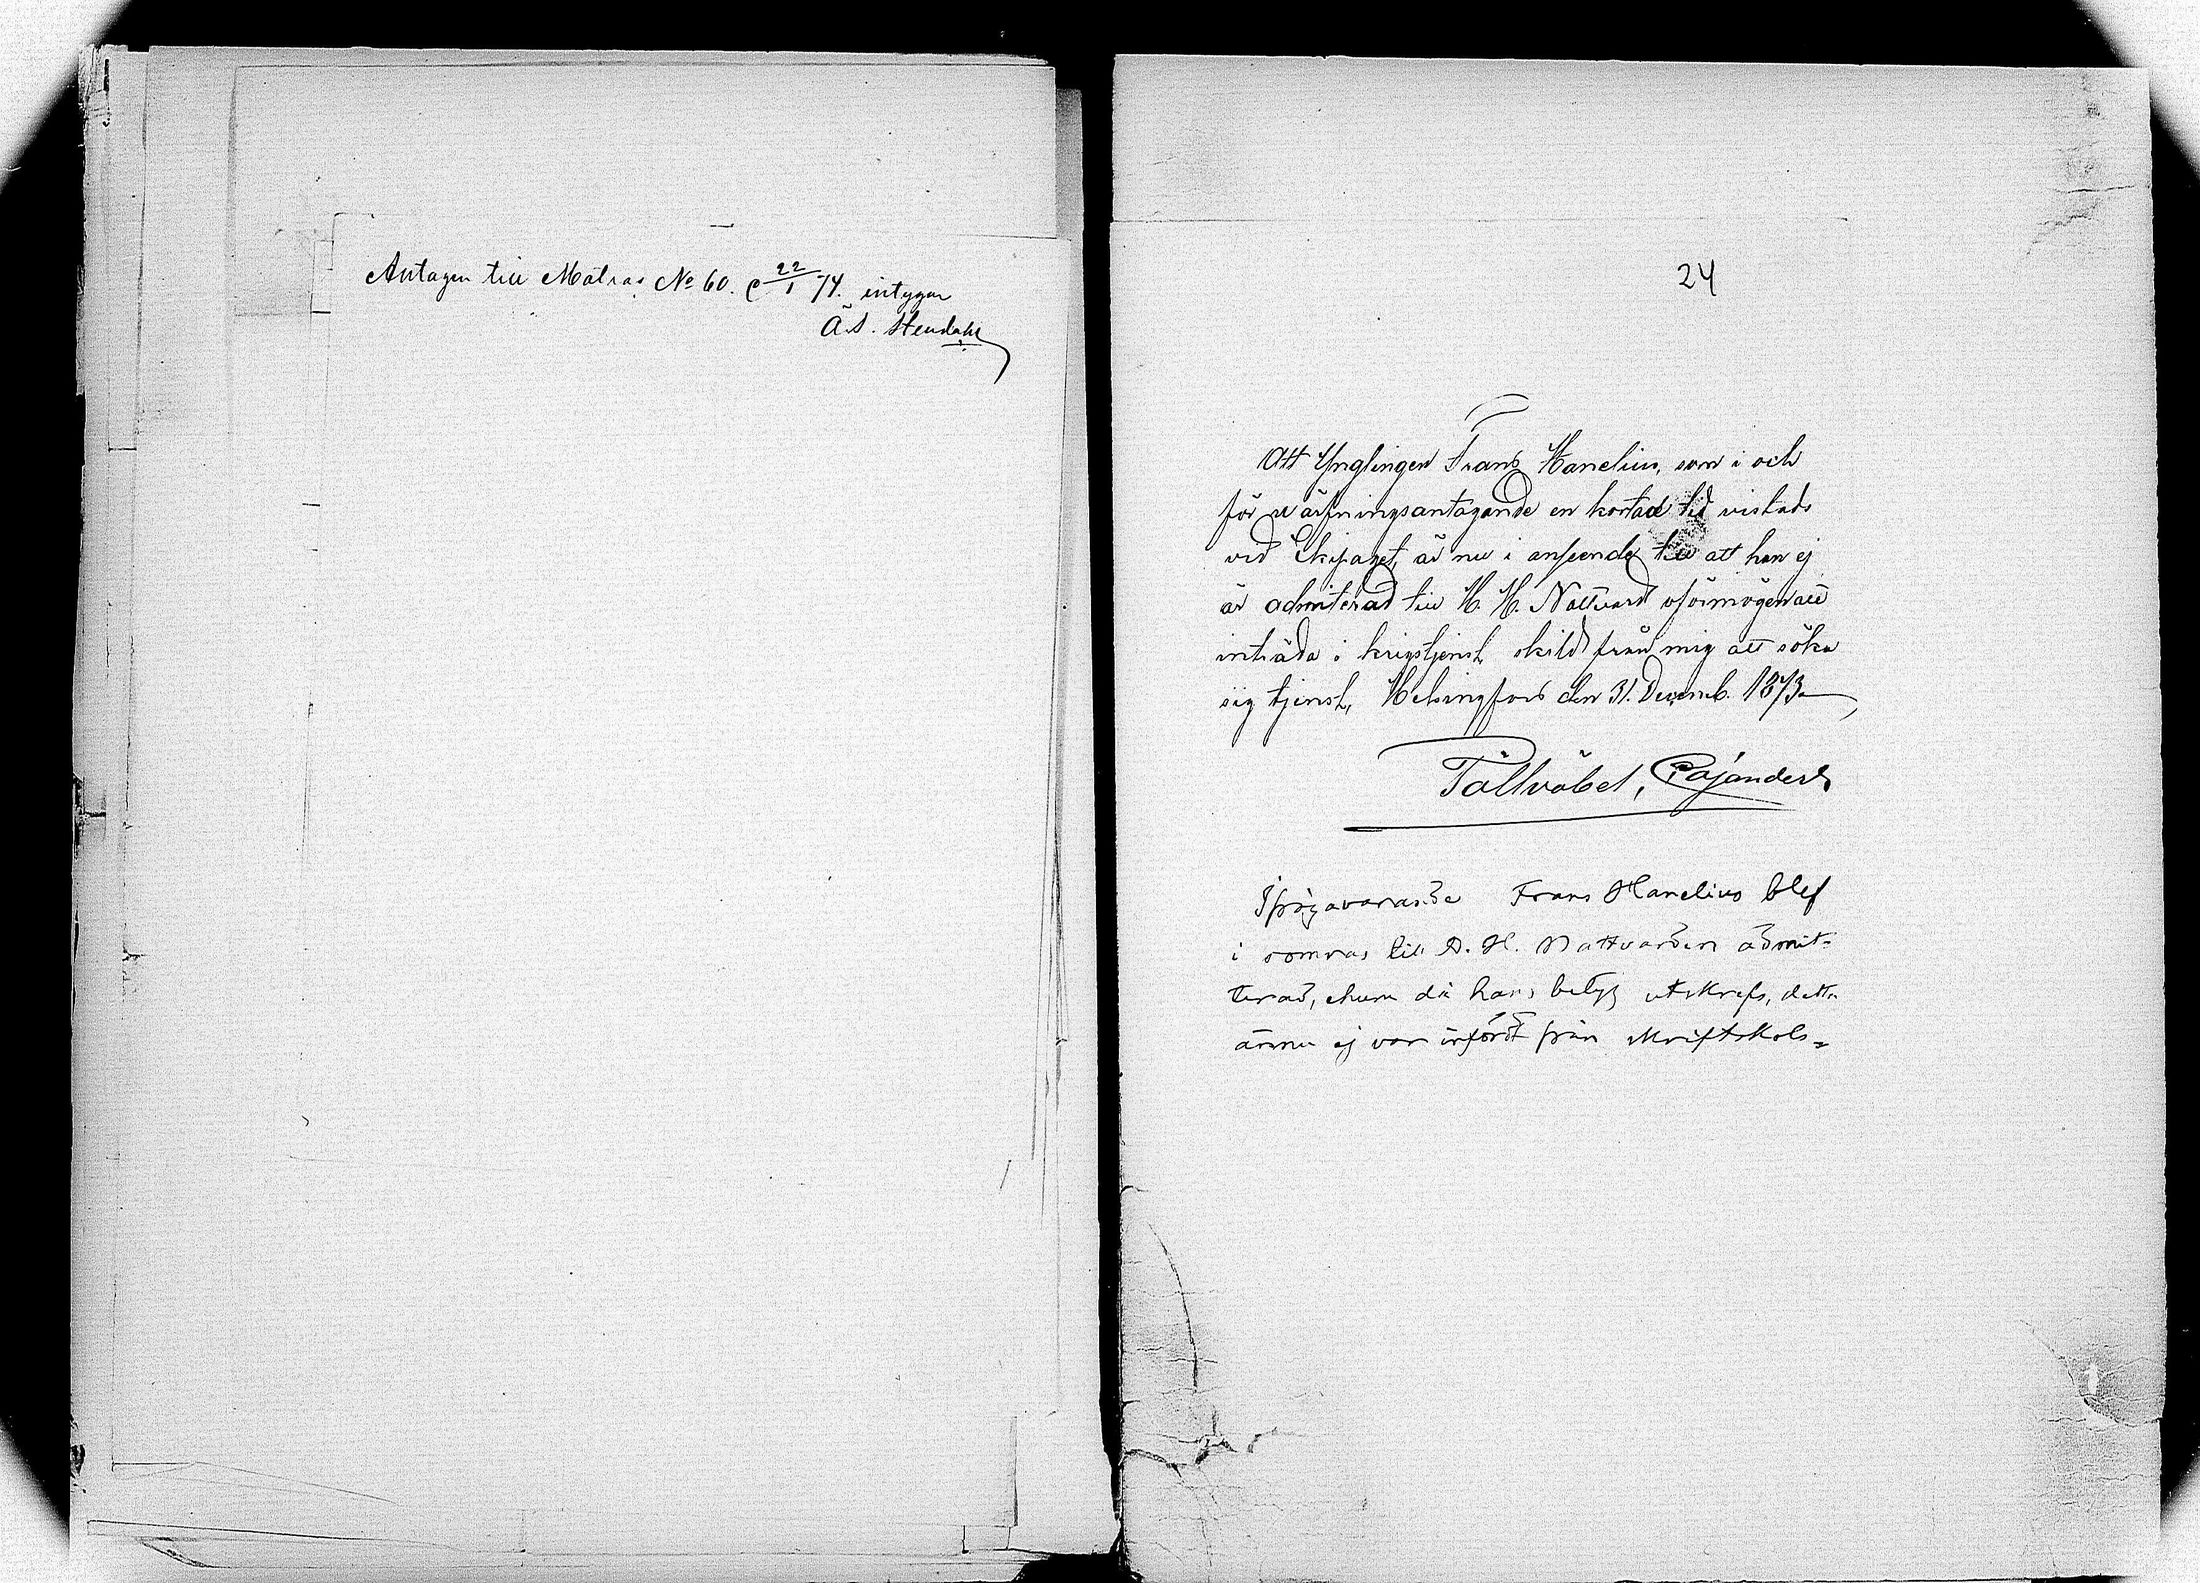 Antagen till Matros No 60. e 22/1 74. intygar
Ä.S. Stendahl
24
Att Ynglingen Frans Hanelius, som i och
för wärfningsantagande en kortad tid vistads
vid Ekipaget, är nu i anseende till att han ej
är admiterad till H. H. Nattvard oförmögen att
inträda i krigstjenst, skild från mig att söka
sig tjenst, Helsingfors den 31. Decemb. 1873.
Fältväbel, Cajander
Ifrågavarande Frans Hanelius blef
i somras till D. H. Nattvarden admit-
terad, ehuru då hans betyg utskrefs, detta
ännu ej var infördt från Skriftskols-